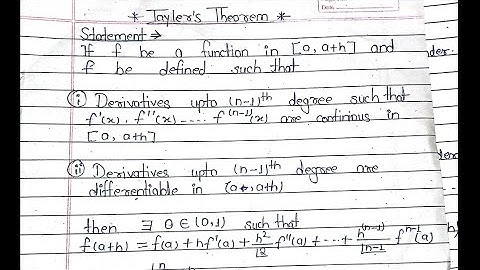 * Tayler's Theorem *
Statement →
If f be a function in [a, a+h] and
f be defined such that
(i) Derivatives upto (n-1)th degree such that
f'(x), f''(x) ---- f^(n-1)(x) are continious in
[a, a+h]
(ii) Derivatives upto (n-1)th degree are
differentiable in (a, a+h)
then ∃ θ ∈ (0,1) such that
f(a+h) = f(a) + hf'(a) + h²/|2 f''(a) + --- + h^(n-1)/|n-1 f^(n-1)(a)